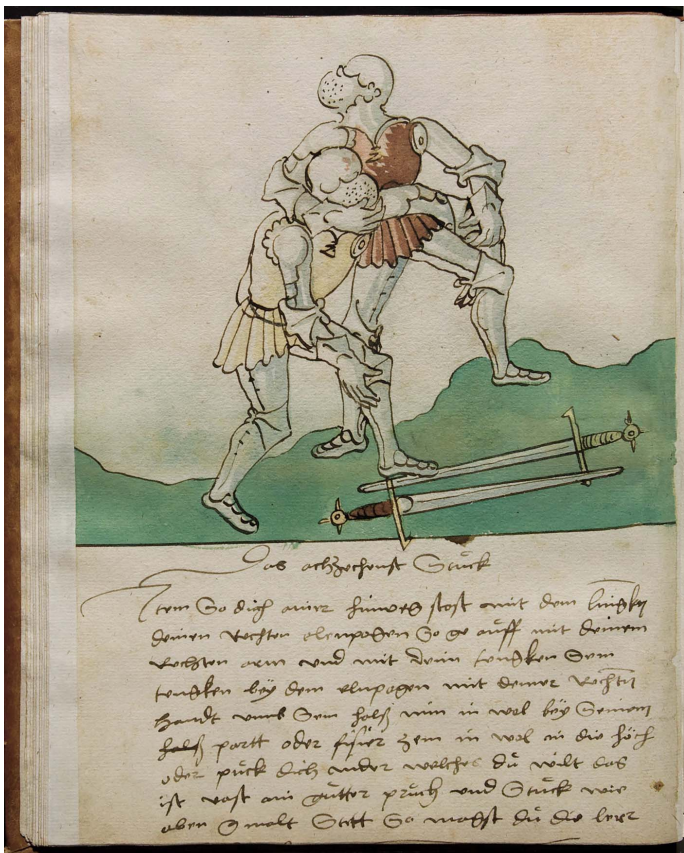 Das achzechenst Stuck
Item So dich ainer hinweg stost mit dem lingken
deinen Rechten elenpogen So ge auff mit deinem
Rechten arm und mit dein lengken Sein
lengken bey dem elnpogen mit deiner Rechten
Handt umb Sein halß nim in wol bey Seinem
halß partt oder fisier zem in wol in die höch
oder puck dich nider welches du wilt das
ist vast ain gutter pruch und Stuck wie
oben Gmalt Stett So magst du die lerr